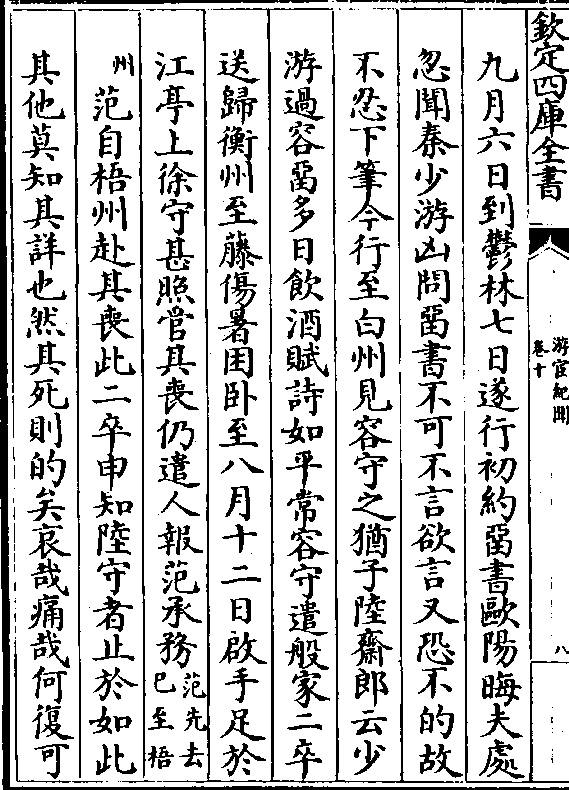 欽定四庫全書
游宦紀聞
卷十
八
九月六日到鬱林七日遂行初約留書歐陽晦夫處
忽聞秦少游凶問留書不可不言欲言又恐不的故
不忍下筆今行至白州見容守之猶子陸齋郎云少
游過容留多日飲酒賦詩如平常容守遣般家二卒
送歸衡州至藤傷暑困卧至八月十二日啟手足於
江亭上徐守甚照管其喪仍遣人報范承務范先去已至梧
州范自梧州赴其喪此二卒申知陸守者止於如此
其他莫知其詳也然其死則的矣哀哉痛哉何復可